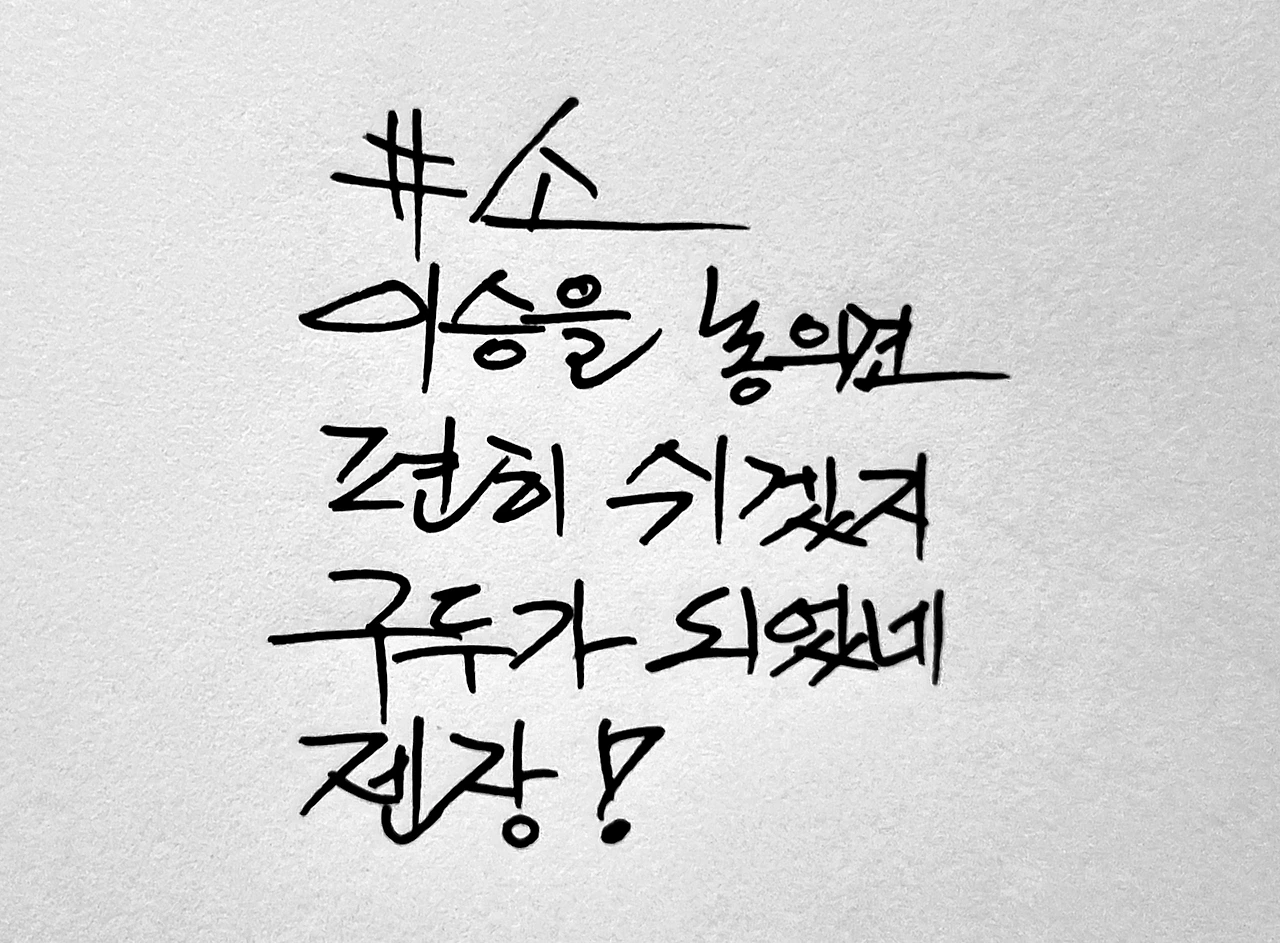 #소
이승을 놓으면
편히 쉬겠지
구두가 되었네
젠장!